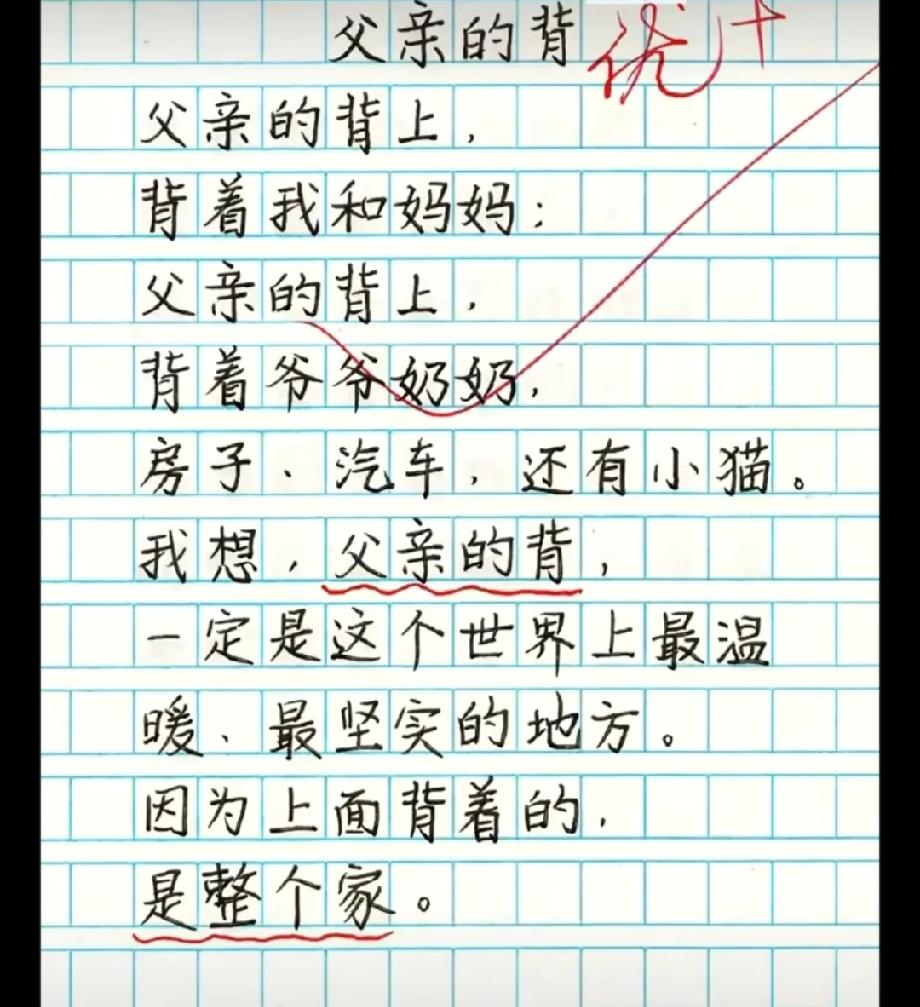 父亲的背 优+
父亲的背上，
背着我和妈妈；
父亲的背上，
背着爷爷奶奶，
房子、汽车，还有小猫。
我想，父亲的背，
一定是这个世界上最温
暖、最坚实的地方。
因为上面背着的，
是整个家。